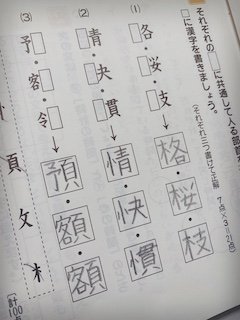 それぞれの□に共通して入る部首
□に漢字を書きましょう。
(それぞれ三つ書けて正解
(1) □各・□・□支→格・桜・枝
(2) □青・□夬・□貫→情・快・慣
(3) 予□・客□・令□→預・額・額
頁 攵 米
計
100